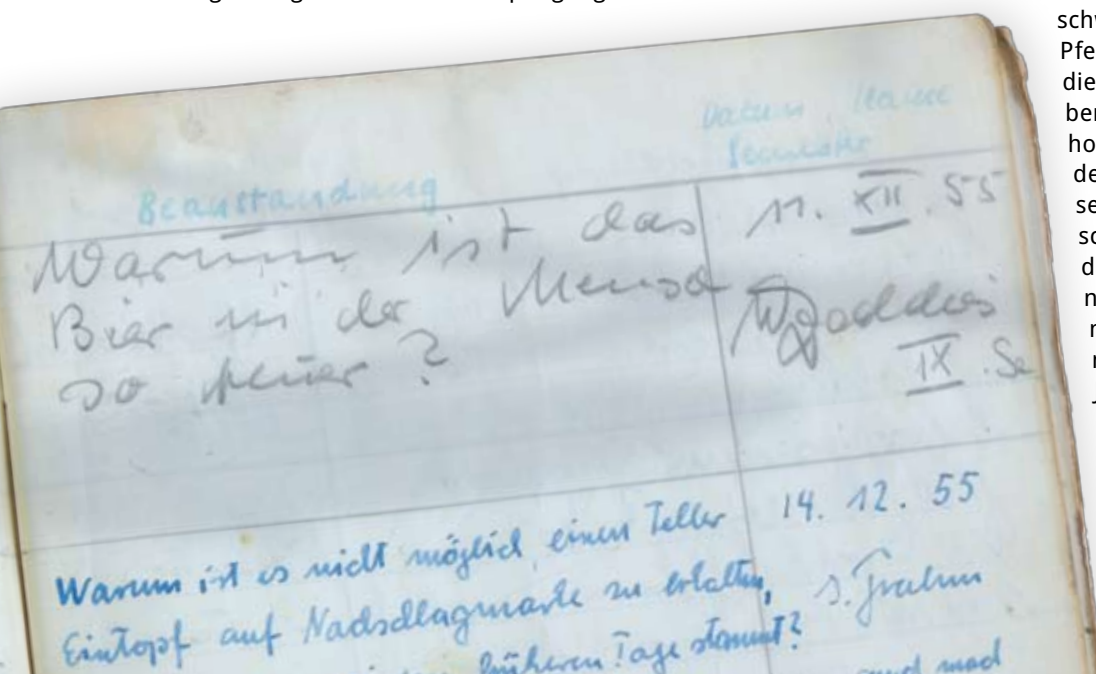 Beanstandung
Datum Name
Semester
Warum ist das
Bier in der Mensa
so teuer?
11. XII. 55
IX. Se
Warum ist es nicht möglich, einen Teller
Eintopf auf Nachschlagmarke zu erhalten,
früheren Tage stammt?
14. 12. 55